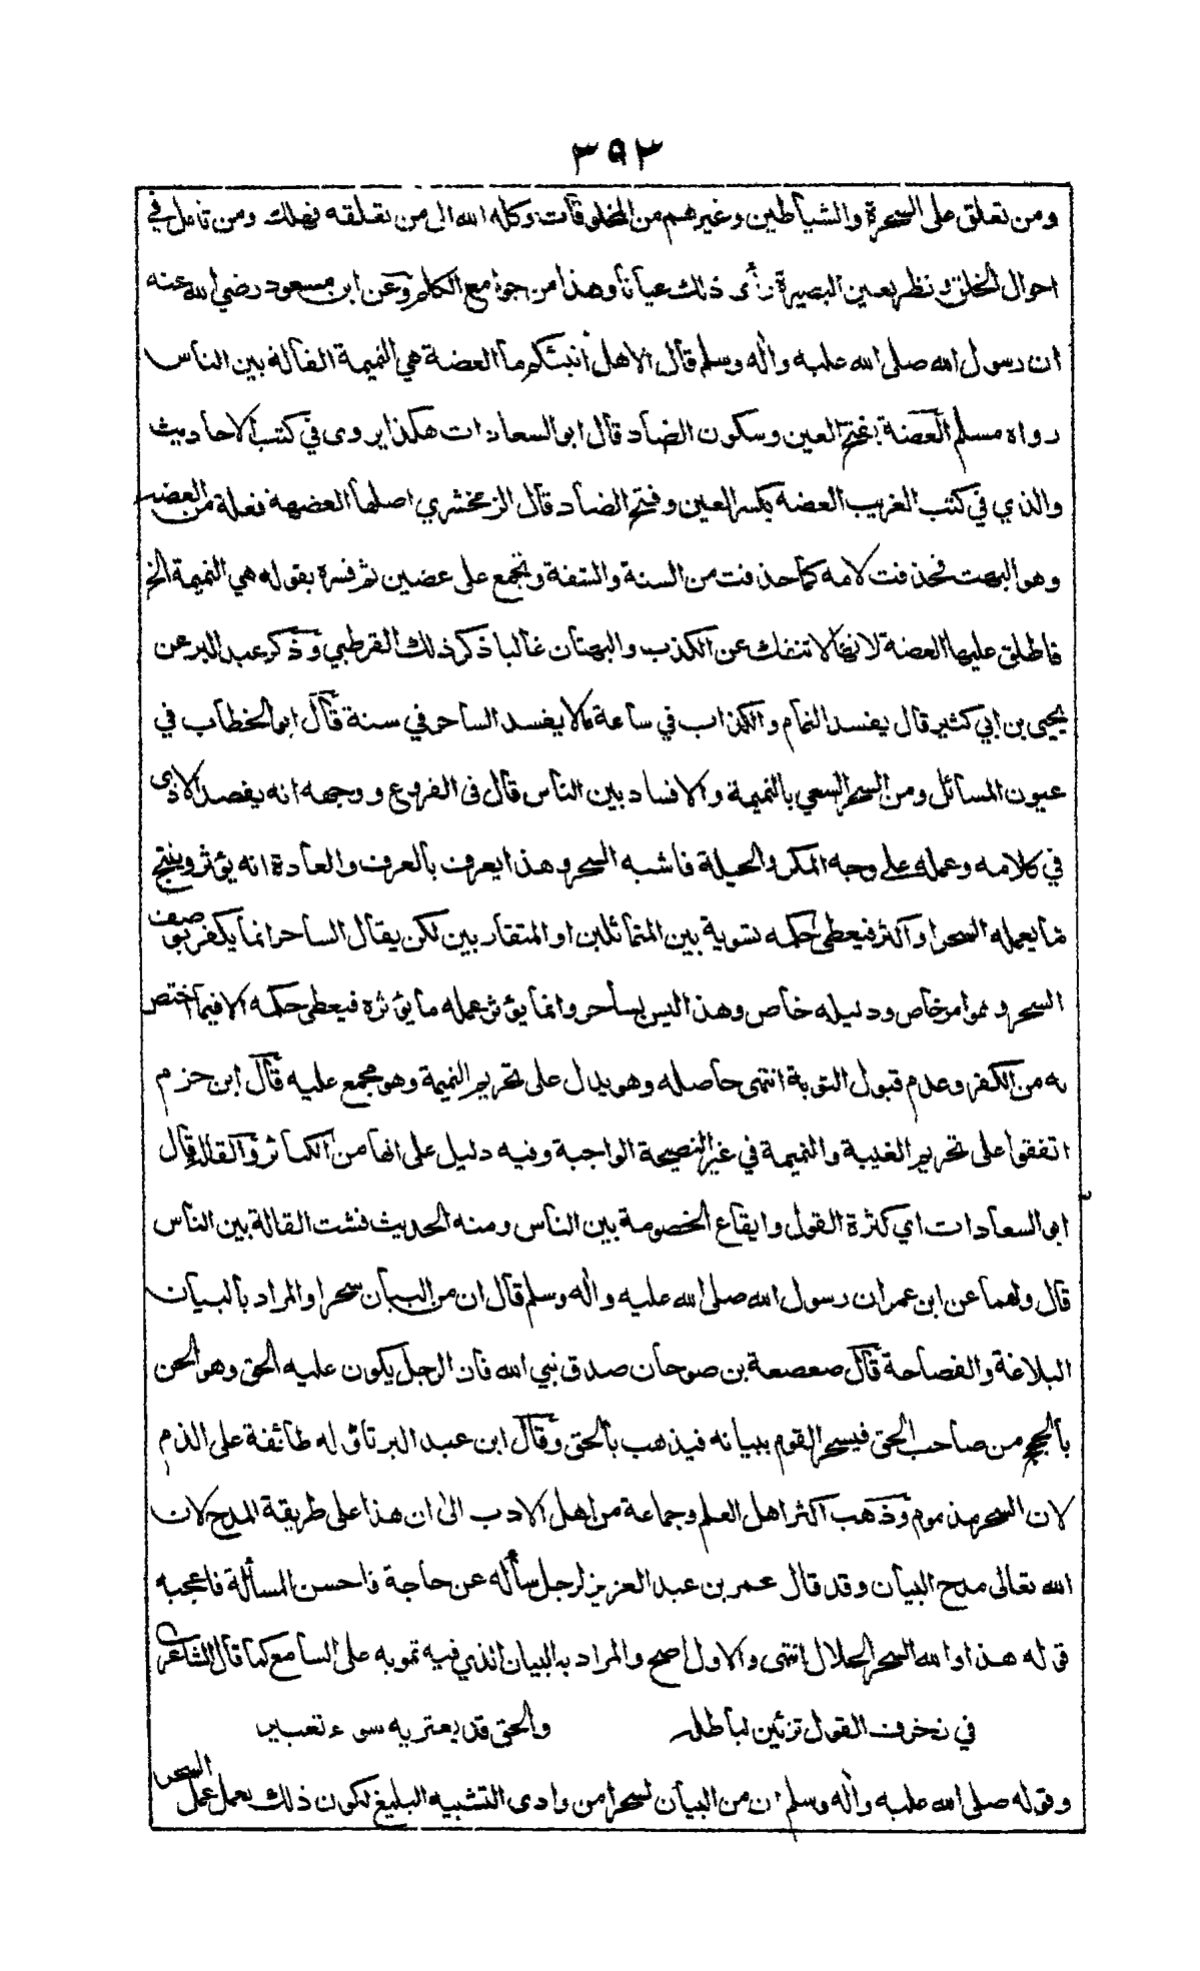 ٣٩٣
ومن تعلق على السحرة والشياطين وغيرهم من المخلوقات وكله الله الى من تعلقه فهلك ومن تامل في
احوال الخلق ونظر بعين البصيرة رأى ذلك عيانا وهذا من جوامع الكلم وعن ابن مسعود رضي الله عنه
ان رسول الله صلى الله عليه واٰله وسلم قال الاهل أنبئكم ما العضة هي النميمة القالة بين الناس
رواه مسلم العضة بفتح العين وسكون الضاد قال ابو السعادات هكذا يروى في كتب الاحاديث
والذي في كتب الغريب العضه بكسر العين وفتح الضاد قال الزمخشري اصلها العضهة فعلة من العضه
وهو البهت فحذفت لامه كما حذفت من السنة والشفة وتجمع على عضين ثم فسره بقوله هي النميمة الخ
فاطلق عليها العضة لانها لا تنفك عن الكذب والبهتان غالبا ذكر ذلك القرطبي وذكر عبد البر عن
يحيى بن ابي كثير قال يفسد النمام والكذاب في ساعة ما لا يفسد الساحر في سنة قال ابو الخطاب في
عيون المسائل ومن السحر السعي بالنميمة والافساد بين الناس قال فى الفروع ووجهه انه يقصد الاذى
في كلامه وعمله على وجه المكر والحيلة فاشبه السحر وهذا يعرف بالعرف والعادة انه يؤثر وينتج
ما يعمله السحر او اكثر فيعطى حكمه تسوية بين المتماثلين او المتقاربين لكن يقال الساحر انما يكفر بوصف
السحر وهو امر خاص ودليله خاص وهذا ليس بساحر وانما يؤثر عمله ما يؤثره فيعطى حكمه الا فيما اختص
به من الكفر وعدم قبول التوبة انتهى حاصله وهو يدل على تحريم النميمة وهو مجمع عليه قال ابن حزم
اتفقوا على تحريم الغيبة والنميمة في غير النصيحة الواجبة وفيه دليل على انها من الكبائر والقالة قال
ابو السعادات اي كثرة القول وايقاع الخصومة بين الناس ومنه الحديث فشت القالة بين الناس
قال ولهما عن ابن عمر ان رسول الله صلى الله عليه واٰله وسلم قال ان من البيان سحرا والمراد بالبيان
البلاغة والفصاحة قال صعصعة بن صوحان صدق نبي الله فان الرجل يكون عليه الحق وهو الحن
بالحجج من صاحب الحق فيسحر القوم ببيانه فيذهب بالحق وقال ابن عبد البر تاوله طائفة على الذم
لان السحر مذموم وذهب اكثر اهل العلم وجماعة من اهل الادب الى ان هذا على طريقة المدح لان
الله تعالى مدح البيان وقد قال عمر بن عبد العزيز لرجل سأله عن حاجة فاحسن المسألة فاعجبه
قوله هذا والله السحر الحلال انتهى والاول اصح والمراد به البيان الذي فيه تمويه على السامع كما قال الشاعر
في زخرف القول تزئين لباطله والحق قد يعتريه سوء تعبير
وقوله صلى الله عليه واٰله وسلم ان من البيان لسحرا من وادى التشبيه البليغ لكون ذلك يعمل عمل السحر